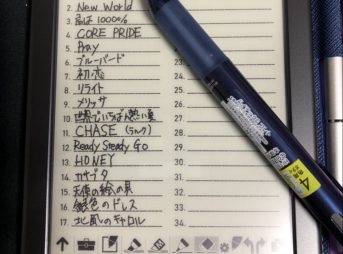 2. New World
3. 風は1000%
4. CORE PRIDE
5. Pray
6. ブルーバード
7. 初恋
8. リライト
9. メリッサ
10. 世界でいちばん熱い夏
11. CHASE (ラルク)
12. Ready Steady Go
13. HONEY
14. カサブタ
15. 天使の絵の具
16. 銀色のドレス
17. 北風のキャロル
23.
24.
25.
28.
29.
30.
31.
32.
33.
34.
4